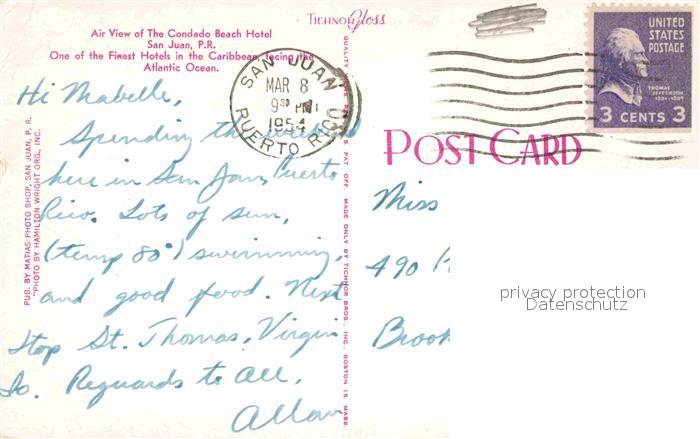 Air View of The Condado Beach Hotel
San Juan, P.R.
One of the Finest Hotels in the Caribbean, facing the
Atlantic Ocean.
TICHNOR Gloss
SAN JUAN
MAR 8
9 30 PM
1954
PUERTO RICO
UNITED
STATES
POSTAGE
THOMAS
JEFFERSON
1801-1809
3 CENTS 3
POST CARD
Hi Mabelle,
Spending the
here in San Juan, Puerto
Rico. Lots of sun,
(temp 80°) swimming,
and good food. Next
Stop St. Thomas, Virgin
Is. Reguards to all,
Allan
Miss
490
Brook
privacy protection
Datenschutz
PUB. BY MATIAS PHOTO SHOP, SAN JUAN, P. R.
"PHOTO BY HAMILTON WRIGHT ORG., INC.
QUALITY VIEWS REG. U. S. PAT. OFF. MADE ONLY BY TICHNOR BROS. INC., BOSTON 15, MASS.